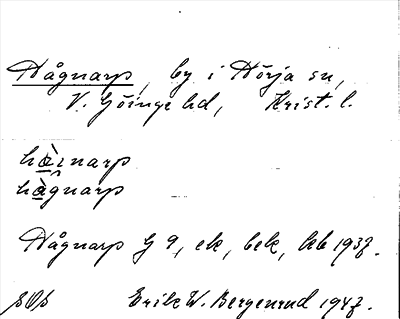 Hågnarp, by i Hörja sn,
V. Göinge hd, Krist. l.
hàınarp
hàgnarp
Hågnarp G 9, ek, bek, hb 1937.
SOS Erik W. Bergenrud 1947.